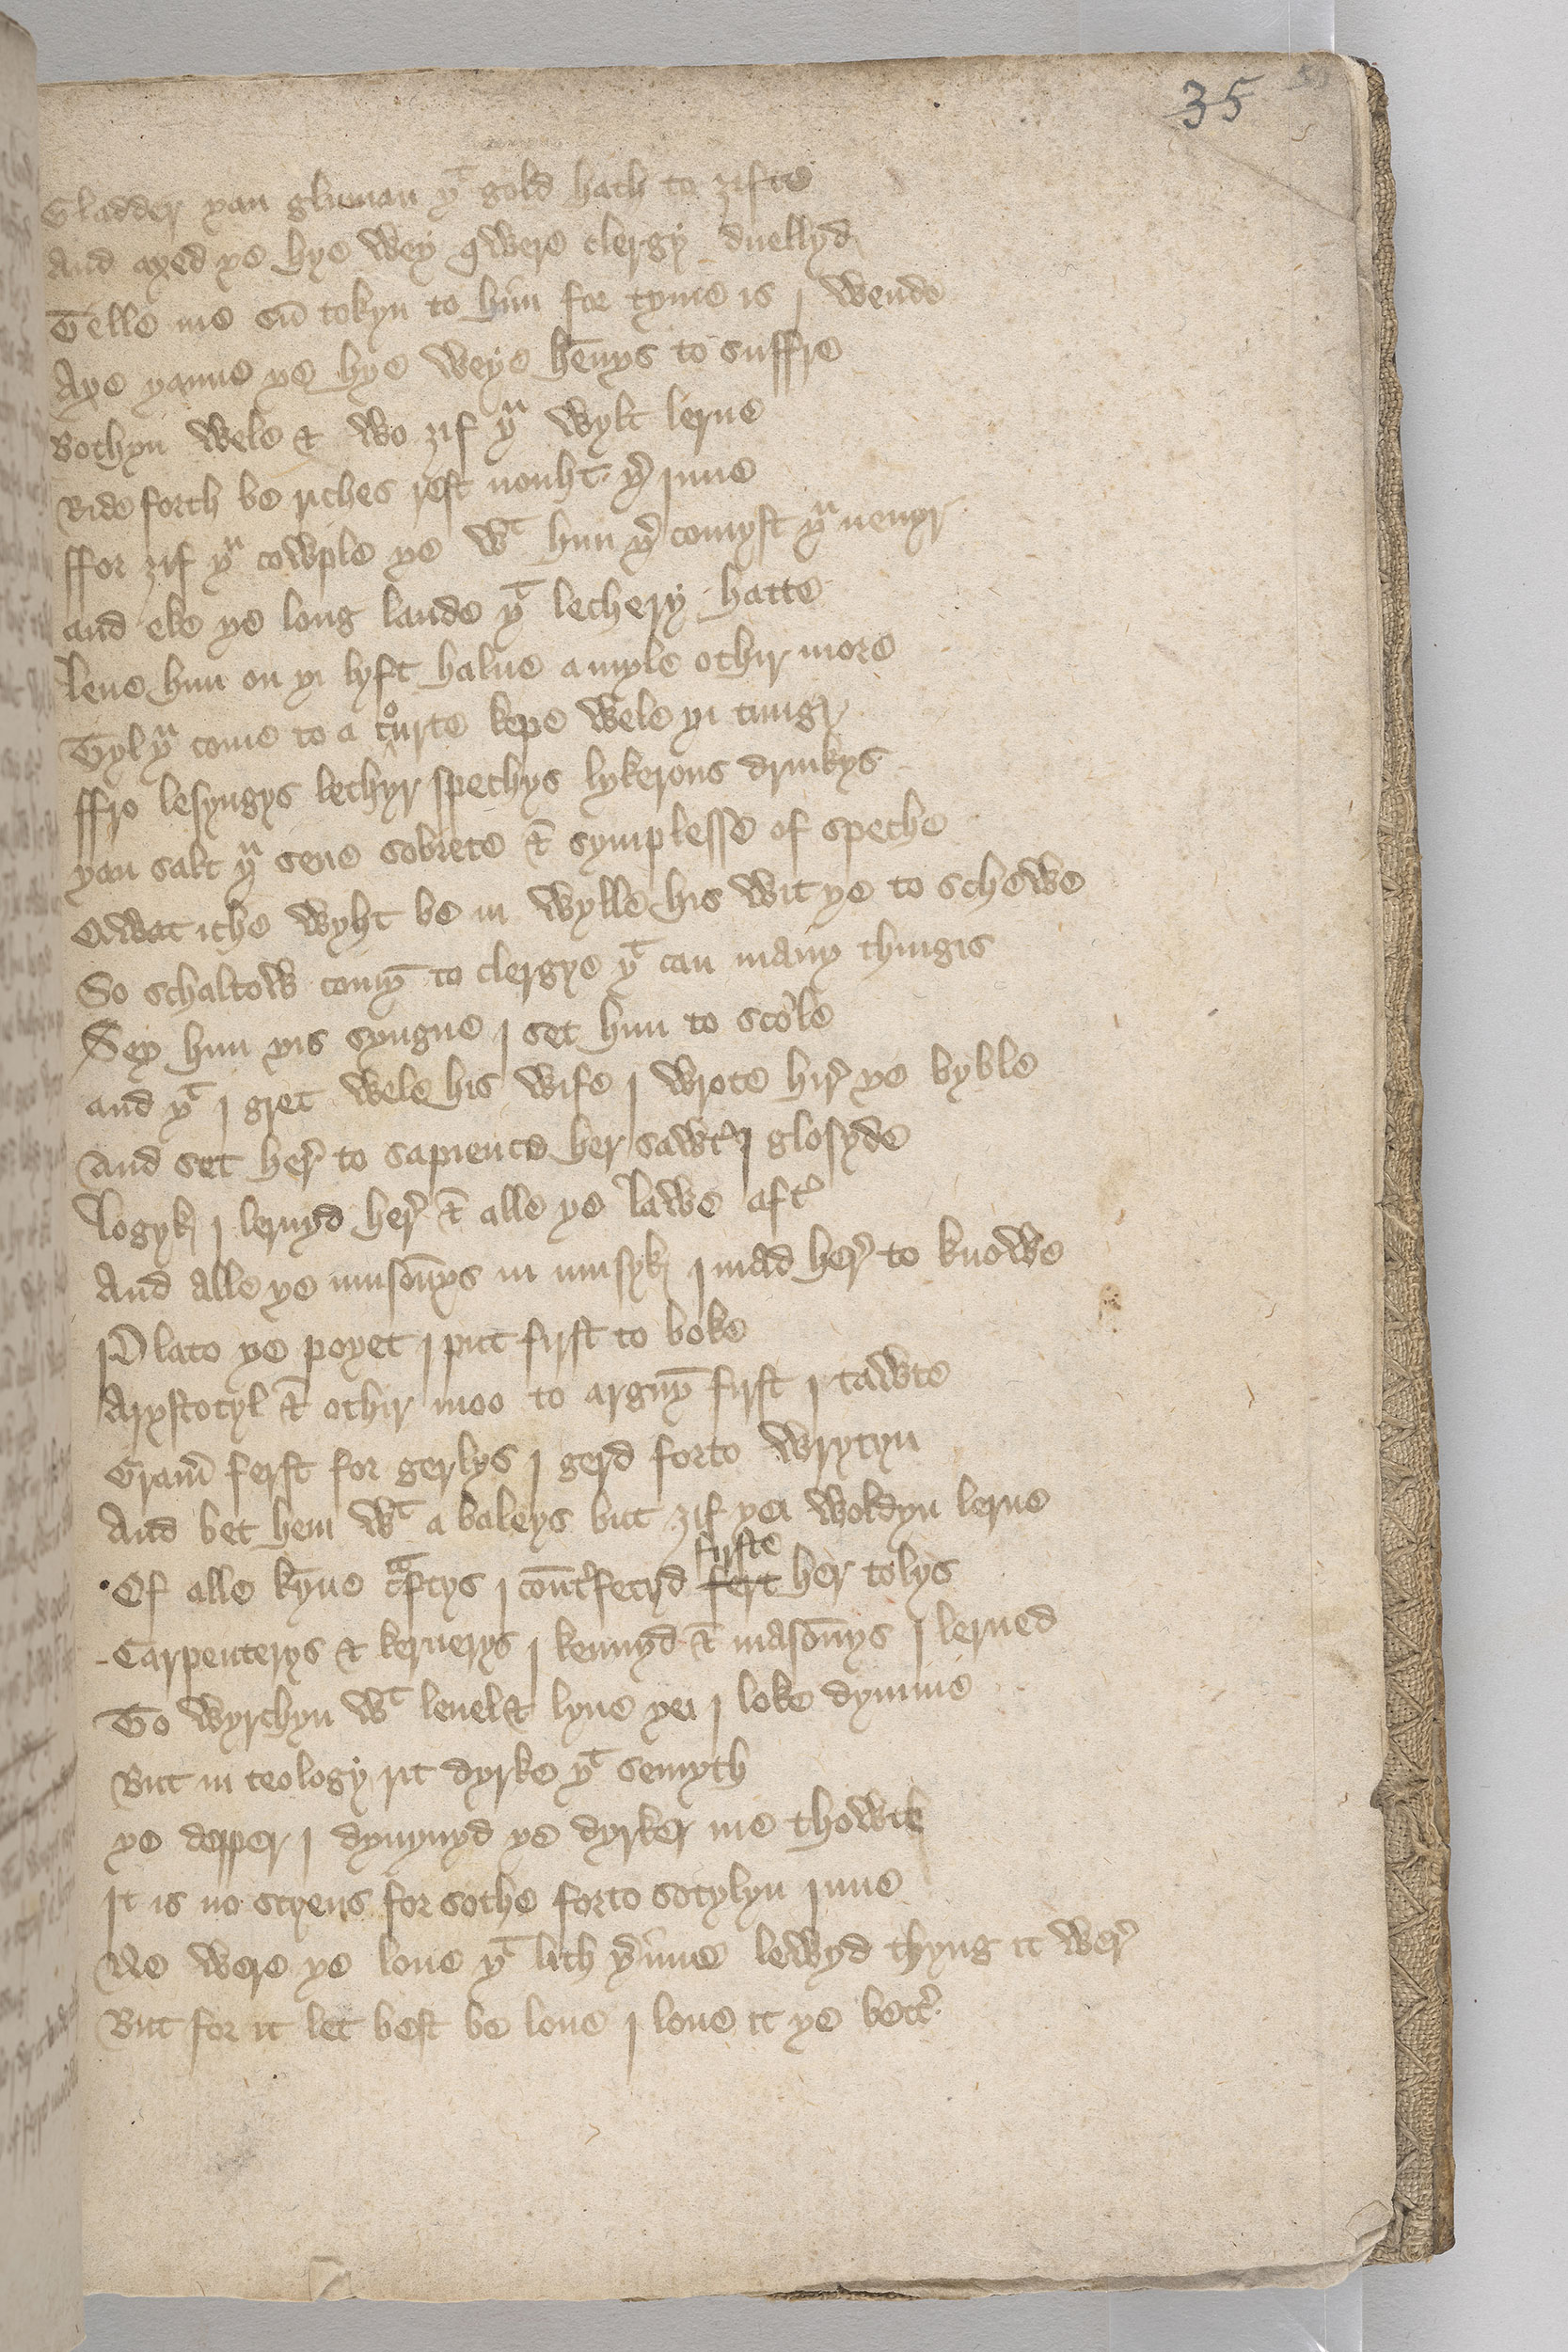 35
Gladder yan gluman yt gold hath to zifte
And axed ye hye wey qwere clergy duellyd
Telle me sū tokyn to hīm for tyme is j wende
Axe yanne ye hye weye hēnys to suffre
Bothyn wele & wo zif yu wylt lerne
Ride forth be riches rest nouht yer jnne
ffor zif yu cowple ye wt him yer comyst yu neuyr
and eke ye long laude yt lechery hatte
leue him on yi lyft halue a myle othir more
Tyl yu come to a courte kepe wele yi tung
ffro lesyngys lethyr spechys lykerous drinkys
yan salt yu sene sobrete & symplesse of speche
yat iche wyht be in wylle his wit ye to schewe
So schaltow comȳ to clergye yt can many thingis
Sey him yis syngne j set him to scole
and yt j gret wele his wife j wrote hir ye byble
And set her to sapience her sawtr j glosyde
logyk j lernyd her & alle ye lawe aftr
And alle ye musoūys in musyk j mad her to knowe
Plato ye poyet j put first to boke
Arystotyl & othir moo to arguȳ first j tawte
Gramr ferst for gerlys j gerd forto wrytyn
And bet hem wt a baleys but zif yei woldyn lerne
Of alle kȳne craftys j coūtrfetyd fert firste her tolys
Carpenterys & keruerys j kennyd & masoūys j lerned
To wyrchyn wt leuel & lyne yei j loke dymme
But in teology it dyrke yt semyth
ye depper j dyuynyd ye dyrker me thowtk
It is no scyens for sothe forto sotylyn jnne
Ne were ye loue yt lith yer īnne lewyd thyng it wer
But for it let best be loue j loue it ye bettr